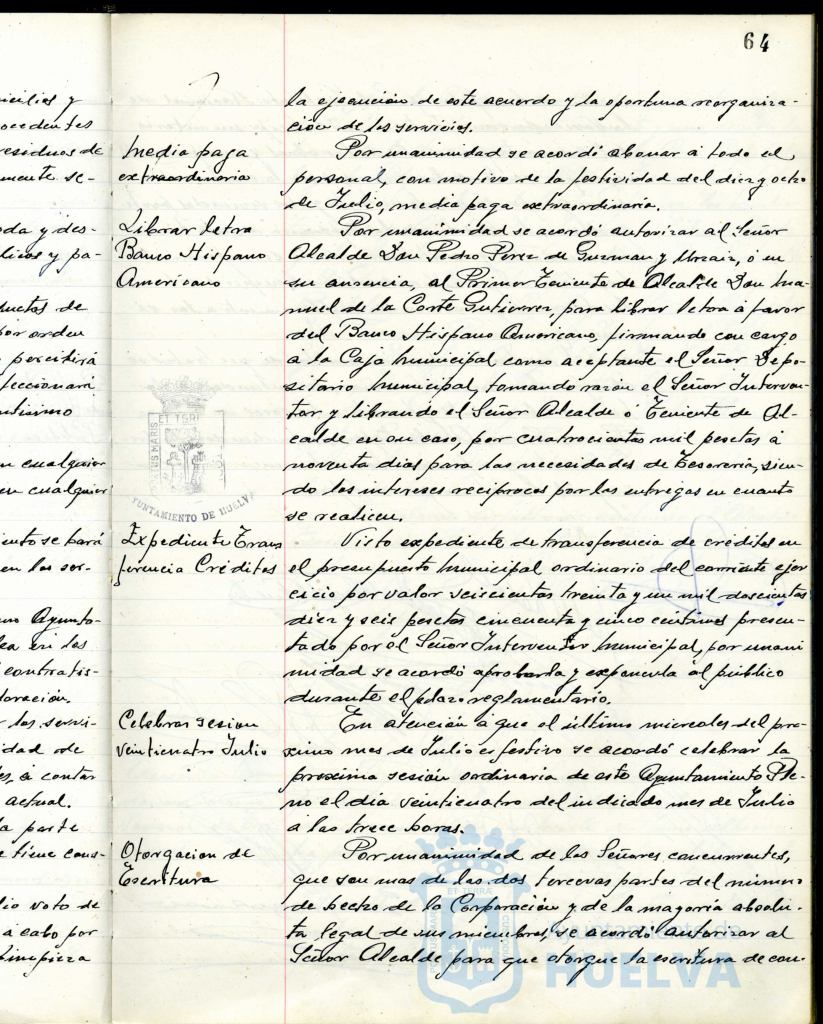 64
icilios y
ocedentes
residuos de
mente se-
oda y des-
licos y pa-
uctos de
por orden
percibirá
feccionará
ntisimo
n cualquier
en cualquier
iento se hará
en los ser-
mo Ayunta-
lea en los
contratis-
loración.
r los servi-
idad de
es, á contar
actual.
la parte
e tiene cons-
lio voto de
á cabo por
limpieza
la ejecución de este acuerdo y la oportuna reorganiza-
ción de los servicios.
Media paga
extraordinaria
Por unanimidad se acordó abonar á todo el
personal, con motivo de la festividad del diez y ocho
de Julio, media paga extraordinaria.
Librar letra
Banco Hispano
Americano
Por unanimidad se acordó autorizar al Señor
Alcalde Don Pedro Perez de Guzman y Urzaiz, ó en
su ausencia, al Primer Teniente de Alcalde Don Ma-
nuel de la Corte Gutierrez, para librar letra á favor
del Banco Hispano Americano, firmando con cargo
á la Caja Municipal como aceptante el Señor Depo-
sitario Municipal, tomando razón el Señor Interven-
tor y librando el Señor Alcalde ó Teniente de Al-
calde en su caso, por cuatrocientas mil pesetas á
noventa dias para las necesidades de Tesoreria, sien-
do los intereses reciprocos por las entregas en cuanto
se realicen.
ET TERR
PORTUS MARIS
AYUNTAMIENTO DE HUELVA
Expediente Trans
ferencia Créditos
Visto expediente de transferencia de créditos en
el presupuesto Municipal ordinario del corriente ejer
cicio por valor seiscientas treinta y un mil doscientas
diez y seis pesetas cincuenta y cinco céntimos presen-
tado por el Señor Interventor Municipal, por unani
midad se acordó aprobarla y exponerla al público
durante el plazo reglamentario.
Celebrar sesion
veinticuatro Julio
En atención á que el último miercoles del pro-
ximo mes de Julio es festivo se acordó celebrar la
proxima sesión ordinaria de este Ayuntamiento Ple-
no el día veinticuatro del indicado mes de Julio
á las trece horas.
Otorgacion de
Escritura
Por unanimidad de los Señores concurrentes,
que son mas de las dos terceras partes del número
de hecho de la Corporación y de la mayoría absolu-
ta legal de sus miembros, se acordó autorizar al
Señor Alcalde para que otorgue la escritura de con-
ET TERRA
Ayuntamiento de
HUELVA